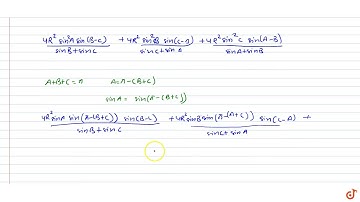 4R² sin²A sin(B-C) / sinB + sinC + 4R² sin²B sin(C-A) / sinC + sinA + 4R² sin²C sin(A-B) / sinA + sinB
A+B+C = π A = π-(B+C)
sinA = sin(π-(B+C))
4R² sinA sin(π-(B+C)) sin(B-C) / sinB + sinC + 4R² sinB sin(π-(A+C)) sin(C-A) / sinC + sinA +
doubtnut